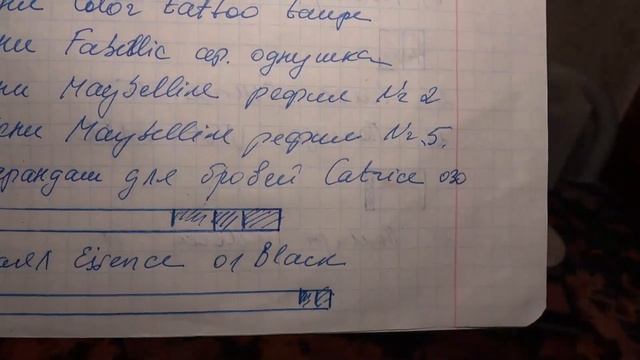 ни Color tattoo taupe
ни Faberlic ар. однушка
ни Maybelline рефил №2
ени Maybelline рефил №5.
рандаш для бровей Catrice 030
аял Essence 01 Black